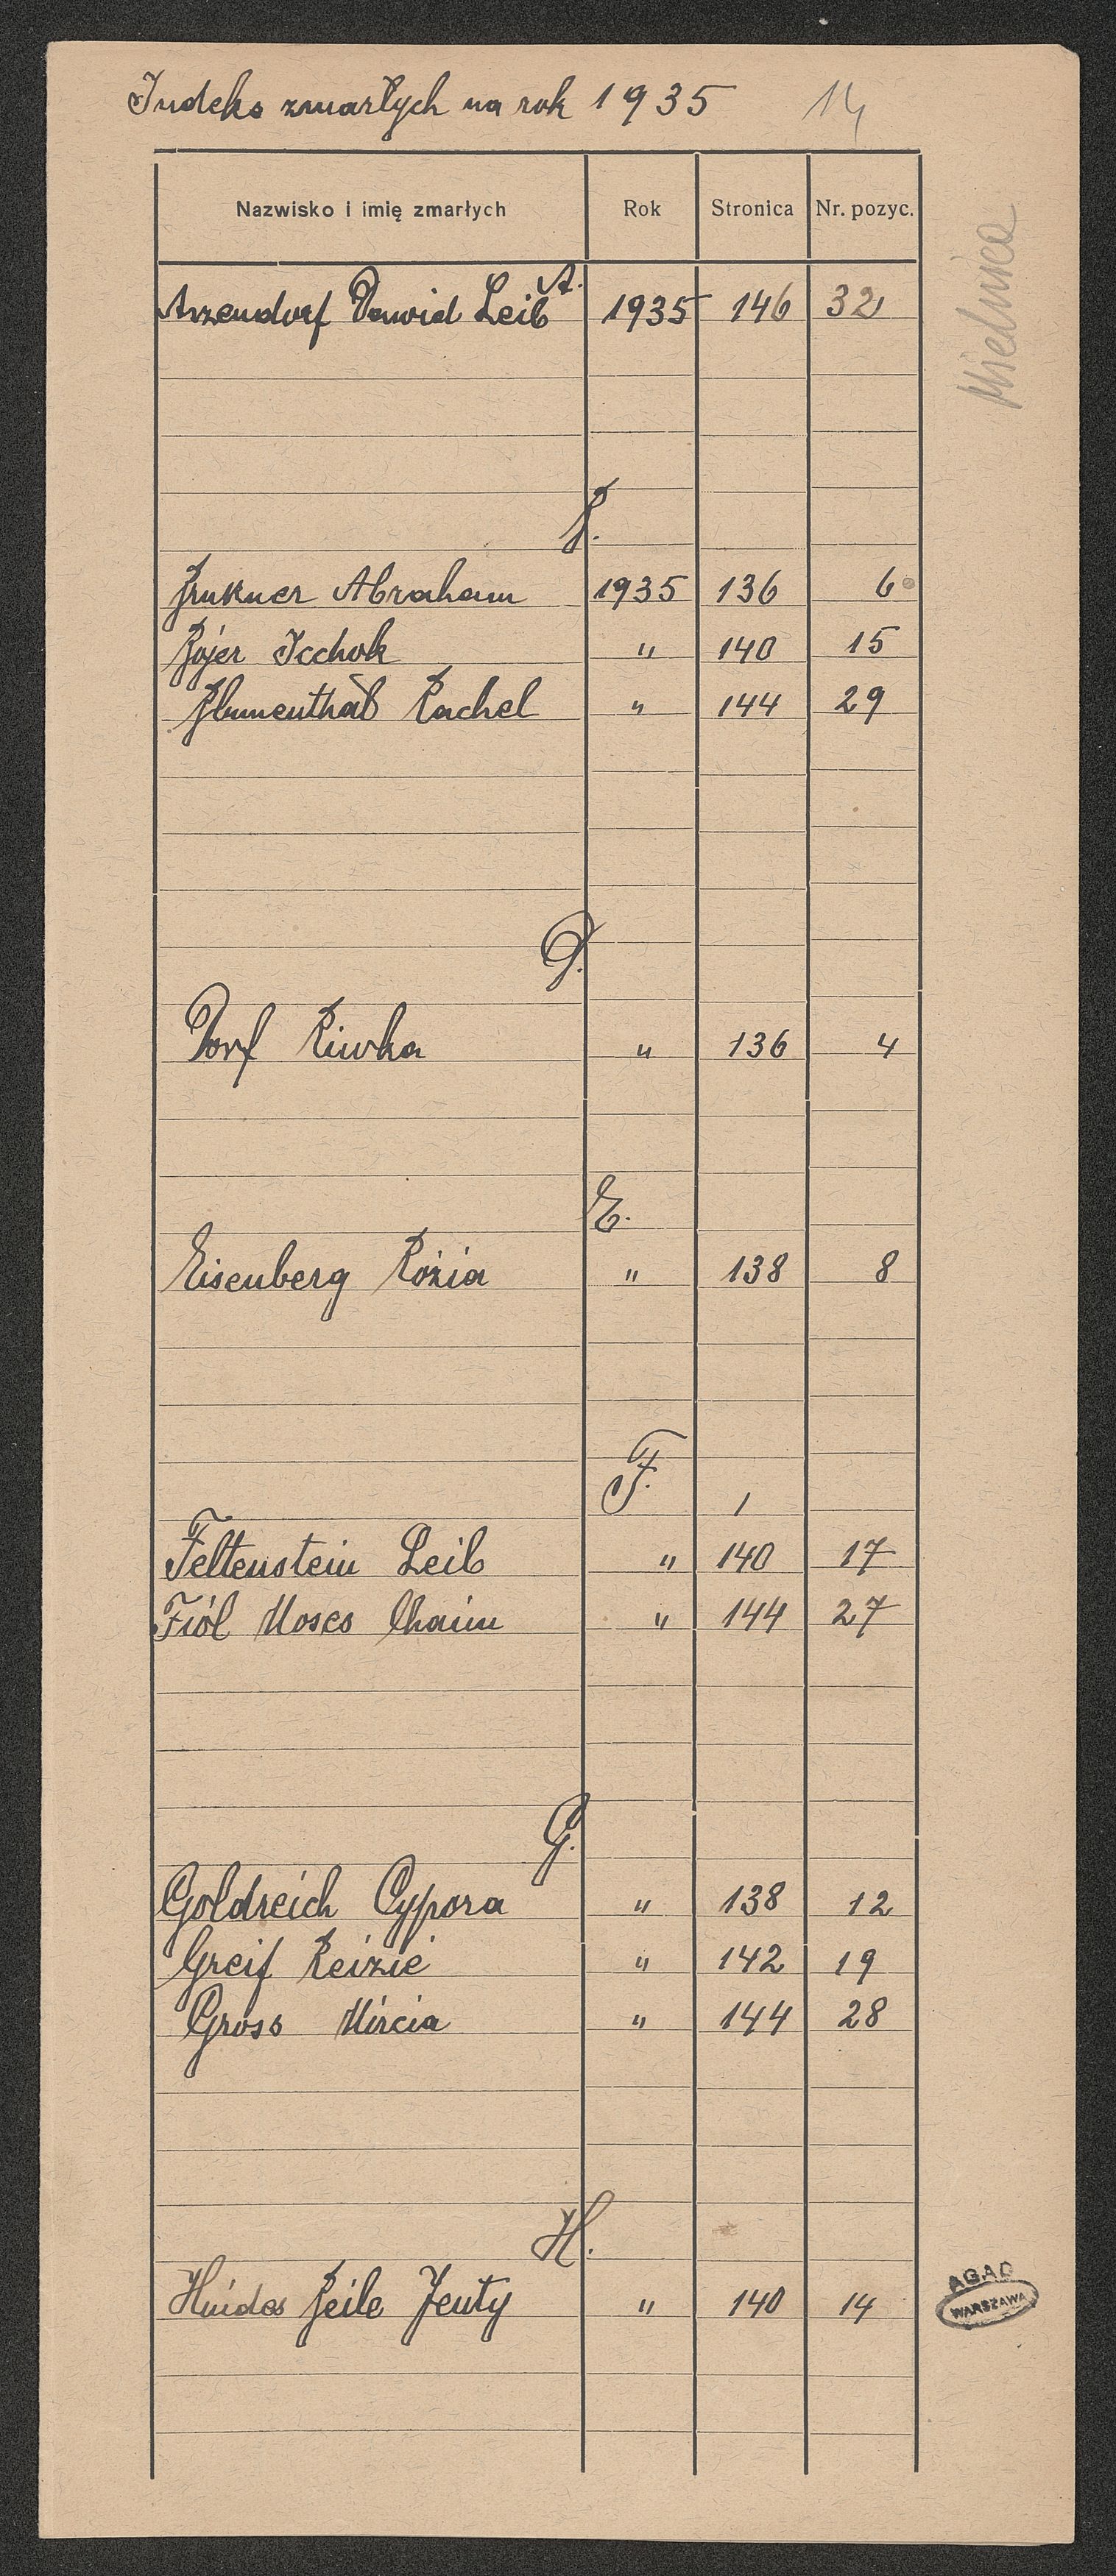 Indeks zmarłych na rok 1935 14
Nazwisko i imię zmarłych Rok Stronica Nr. pozyc.
Mielnica
A.
Arzendorf Dawid Leib 1935 146 32
B.
Brukner Abraham 1935 136 6
Bojer Icchok " 140 15
Blumenthal Rachel " 144 29
D.
Dorf Riwka " 136 4
E.
Eisenberg Rózia " 138 8
F.
Feltenstein Leib " 140 17
Fiól Moses Chaim " 144 27
G.
Goldreich Cypora " 138 12
Greif Reizie " 142 19
Gross Mircia " 144 28
H.
Beile Jenty " 140 14
AGAD
WARSZAWA